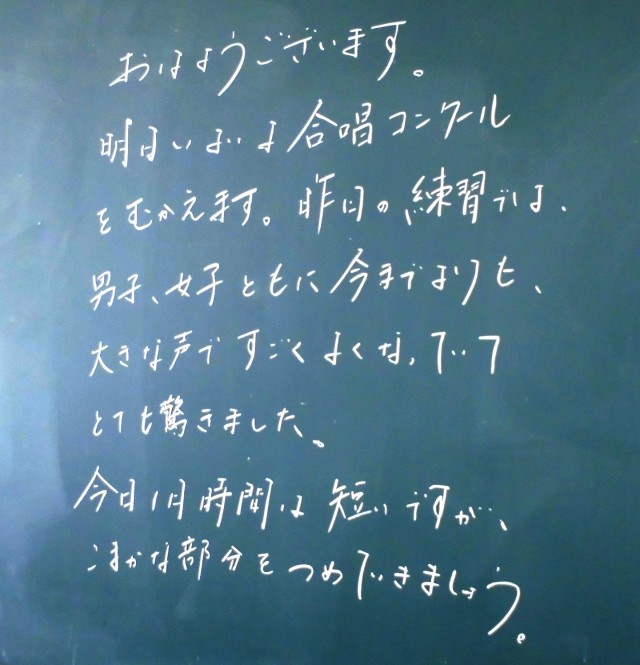 おはようございます。
明日いよいよ合唱コンクール
をむかえます。昨日の練習では、
男子、女子ともに今までよりも、
大きな声ですごくよくなっていて
とても驚きました。
今日は時間は短いですが、
こまかな部分をつめていきましょう。